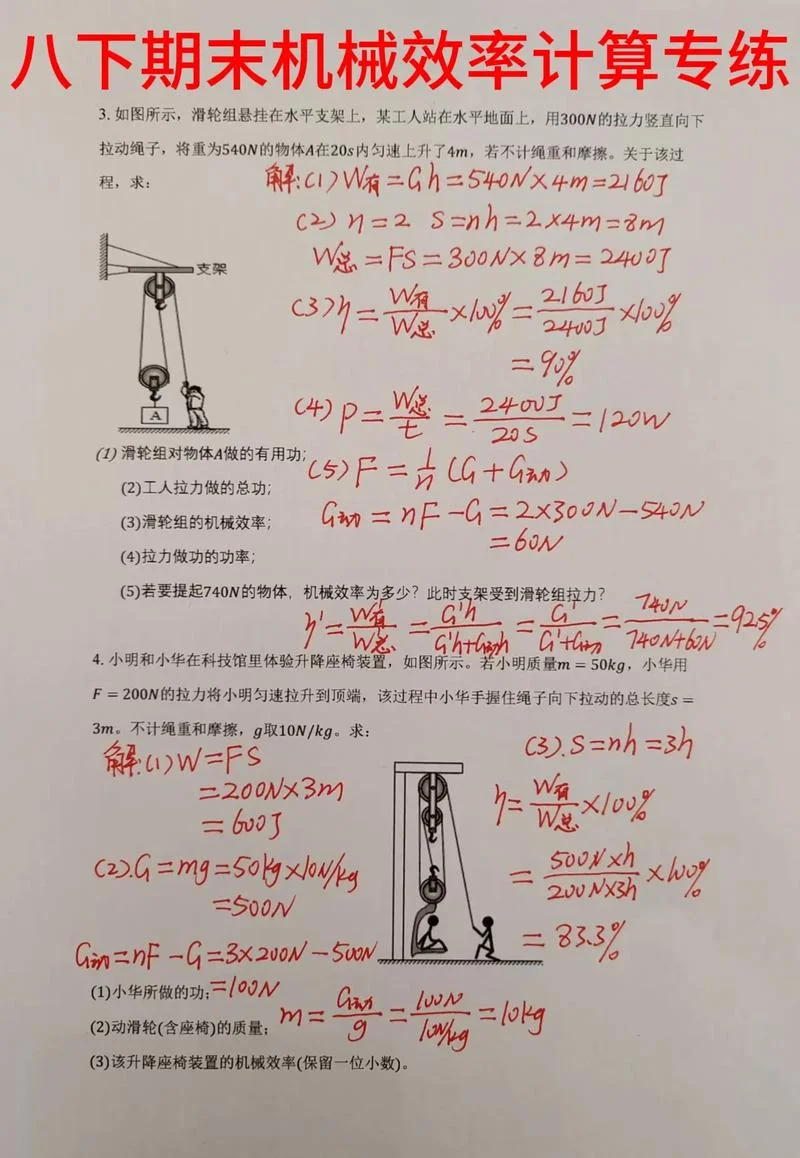 八下期末机械效率计算专练
3. 如图所示，滑轮组悬挂在水平支架上，某工人站在水平地面上，用300N的拉力竖直向下
拉动绳子，将重为540N的物体A在20s内匀速上升了4m，若不计绳重和摩擦。关于该过
程，求：
解:(1) W有=Gh=540N×4m=2160J
(2) n=2 S=nh=2×4m=8m
W总=FS=300N×8m=2400J
支架
(3) η=W有/W总×100%=2160J/2400J×100%
=90%
A
(4) P=W总/t=2400J/20s=120W
(1) 滑轮组对物体A做的有用功；
(5) F=1/n(G+G动)
(2)工人拉力做的总功；
(3)滑轮组的机械效率；
G动=nF-G=2×300N-540N
=60N
(4)拉力做功的功率；
(5)若要提起740N的物体，机械效率为多少？此时支架受到滑轮组拉力？
η'=W有'/W总'=G'h/G'h+G动h=G'/G'+G动=740N/740N+60N=92.5%
4. 小明和小华在科技馆里体验升降座椅装置，如图所示。若小明质量m=50kg，小华用
F=200N的拉力将小明匀速拉升到顶端，该过程中小华手握住绳子向下拉动的总长度s=
3m。不计绳重和摩擦，g取10N/kg。求：
解:(1) W=FS
=200N×3m
=600J
(2).G=mg=50kg×10N/kg
=500N
G动=nF-G=3×200N-500N
=100N
(3).S=nh=3h
η=W有/W总×100%
=500N×h/200N×3h×100%
=83.3%
(1)小华所做的功；
(2)动滑轮(含座椅)的质量；
m=G动/g=100N/10N/kg=10kg
(3)该升降座椅装置的机械效率(保留一位小数)。